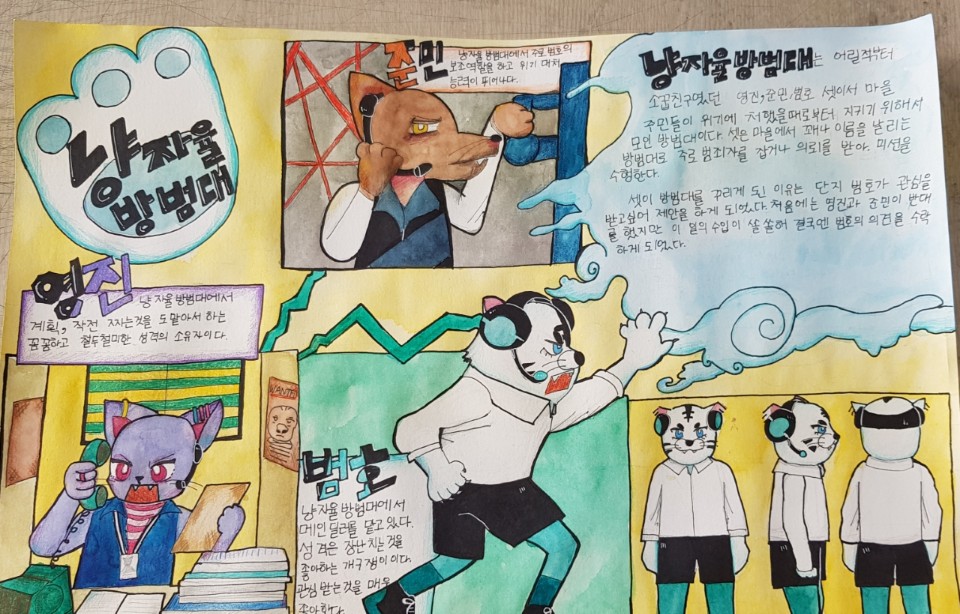 냥자율
방범대
준민 냥자율 방범대에서 주로 범호의
보조역할을 하고 위기 대처
능력이 뛰어나다.
냥자율방범대는 어릴적부터
소꿉친구였던 영진,준민,범호 셋이서 마을
주민들이 위기에 처했을때로부터 지키기 위해서
모인 방범대이다. 셋은 마을에서 꽤나 이름을 날리는
방범대로 주로 범죄자를 잡거나 의뢰를 받아. 미션을
수행한다.
셋이 방범대를 꾸리게 된 이유는 단지 범호가 관심을
받고싶어 제안을 하게 되었다. 처음에는 영진과 준민이 반대
를 했지만 이 일의 수입이 쏠쏠해 결국엔 범호의 의견을 수락
하게 되었다.
영진 냥자율방범대에서
계획, 작전 짜는것을 도맡아서 하는
꼼꼼하고 철두철미한 성격의 소유자이다.
WANTED
범호
냥자율 방범대에서
메인 딜러를 맡고 있다.
성격은 장난치는것을
좋아하는 개구쟁이이다.
관심 받는것을 매우
좋아한다.